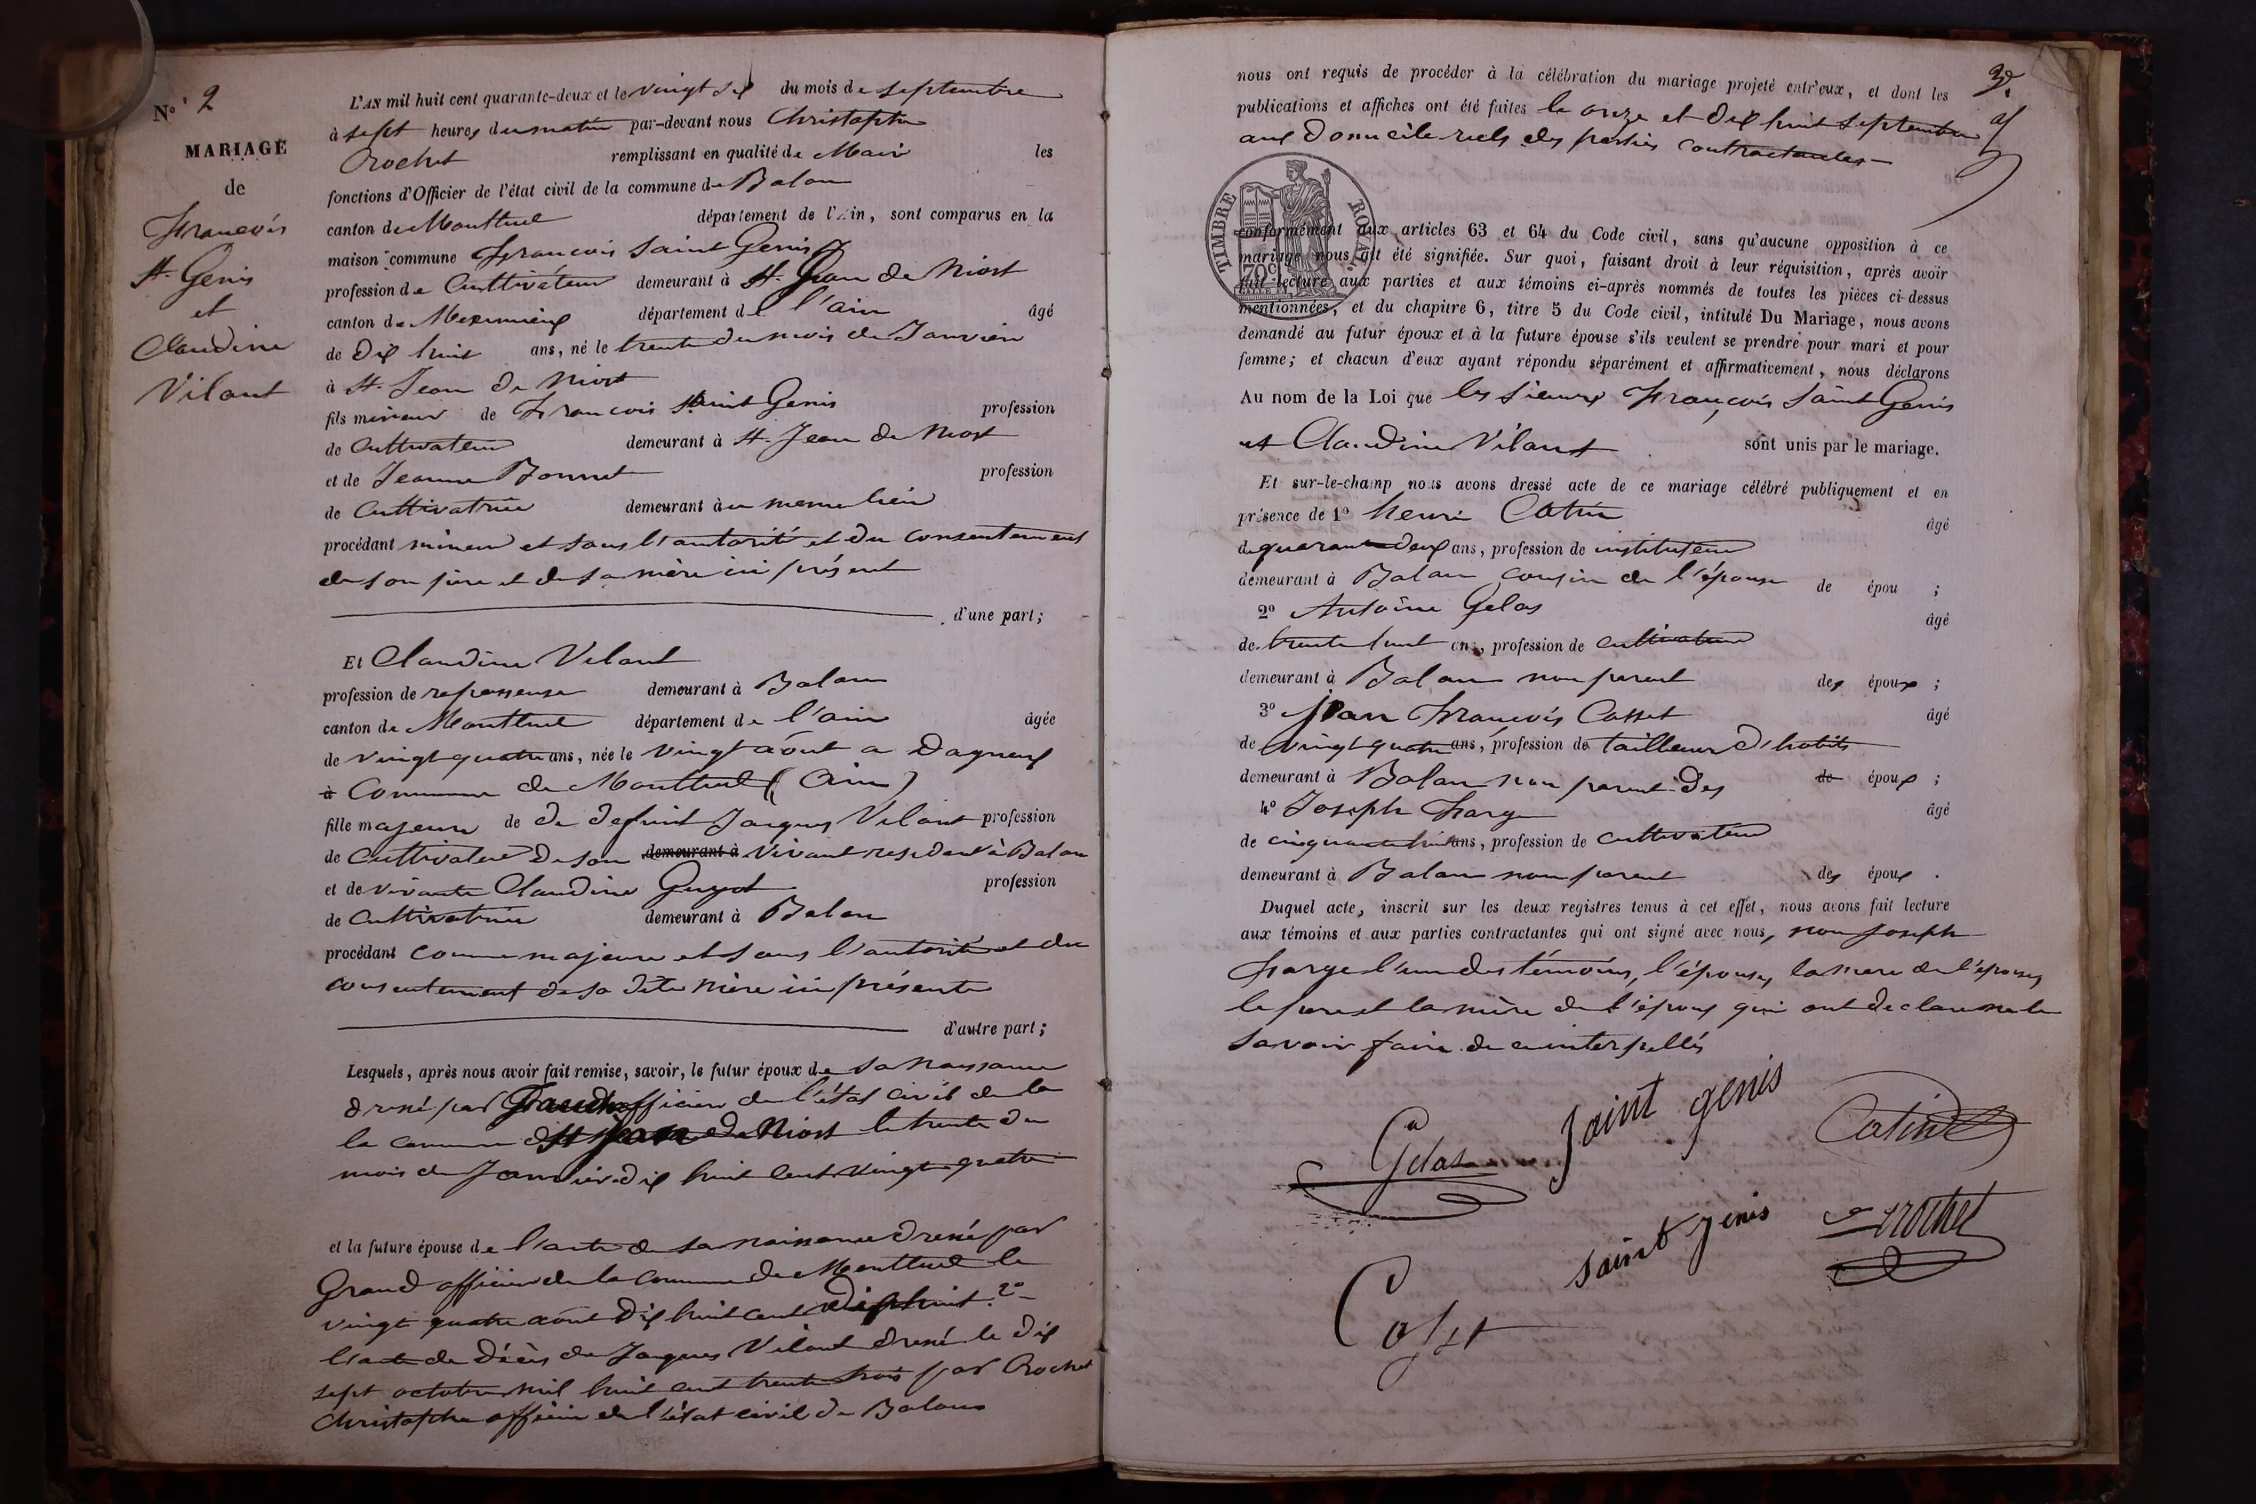 N° 2
MARIAGE
de
François
St. Genis
et
Claudine
Vilant
L'AN mil huit cent quarante-deux et le vingt six du mois de septembre
à sept heures du matin par-devant nous Christophe
Crochet remplissant en qualité de Mair les
fonctions d'Officier de l'état civil de la commune de Balan
canton de Montluel département de l'Ain, sont comparus en la
maison commune François Saint Genis
profession de Cultivateur demeurant à St. Jean de Niost
canton de Meximieux département de l'ain âgé
de dix huit ans, né le trente du mois de Janvier
à St. Jean de Niost
fils mineur de François Saint Genis profession
de Cultivateur demeurant à St. Jean de Niost
et de Jeanne Bonnet profession
de Cultivatrice demeurant àu meme lieu
procédant mineur et sous l'autorité et du consentement
de son père et de sa mère ici présent
d'une part;
Et Claudine Vilant
profession de repasseuse demeurant à Balan
canton de Montluel département de l'ain âgée
de vingt quatre ans, née le vingt août a Dagneux
à Commune de Montluel (Ain)
fille majeure de de defunt Jacques Vilant profession
de Cultivateur de son demeurant à vivant residant à Balan
et de vivante Claudine Guyot profession
de Cultivatrice demeurant à Balan
procédant comme majeure et sous l'autorité et du
consentement de sa dite mère ici présente
d'autre part;
Lesquels, après nous avoir fait remise, savoir, le futur époux de sa naissance
dressé par officier de l'état civil de la
la commune de St Jean de Niost le trente du
mois de Janvier dix huit cent vingt quatre
et la future épouse de l'acte de sa naissance dressé par
Grand officier de la commune de Montluel le
vingt quatre août dix huit cent dix huit. 2°
l'acte de décès de Jacques Vilant dressé le dix
sept octobre mil huit cent trente trois par Crochet
Christophe officier de l'état civil de Balan
nous ont requis de procéder à la célébration du mariage projeté entr'eux, et dont les
publications et affiches ont été faites le onze et dix huit septembre
aux domicile reels des parties contractantes
TIMBRE ROYAL
70c
conformément aux articles 63 et 64 du Code civil, sans qu'aucune opposition à ce
mariage nous ait été signifiée. Sur quoi, faisant droit à leur réquisition, après avoir
fait lecture aux parties et aux témoins ci-après nommés de toutes les pièces ci-dessus
mentionnées, et du chapitre 6, titre 5 du Code civil, intitulé Du Mariage, nous avons
demandé au futur époux et à la future épouse s'ils veulent se prendre pour mari et pour
femme; et chacun d'eux ayant répondu séparément et affirmativement, nous déclarons
Au nom de la Loi que les sieurs François Saint Genis
et Claudine Vilant sont unis par le mariage.
Et sur-le-champ nous avons dressé acte de ce mariage célébré publiquement et en
présence de 1° henri Catin âgé
de quarante deux ans, profession de instituteur
demeurant à Balan cousin de l'épouse de épou ;
2° Antoine Gelas âgé
de trente huit ans, profession de cultivateur
demeurant à Balan non parent des époux ;
3° Jean François Cosset âgé
de vingt quatre ans, profession de tailleur d'habits
demeurant à Balan non parent des de époux ;
4° Joseph Farge âgé
de cinquante huit ans, profession de cultivateur
demeurant à Balan non parent des époux .
Duquel acte, inscrit sur les deux registres tenus à cet effet, nous avons fait lecture
aux témoins et aux parties contractantes qui ont signé avec nous, non Joseph
Farge l'un des témoins, l'épouse, la mere de l'épouse,
le pere et la mère de l'époux qui ont declaré ne le
savoir faire de ce interpellés
Gelas
Saint genis
Catin
saint genis
Crochet
Coset